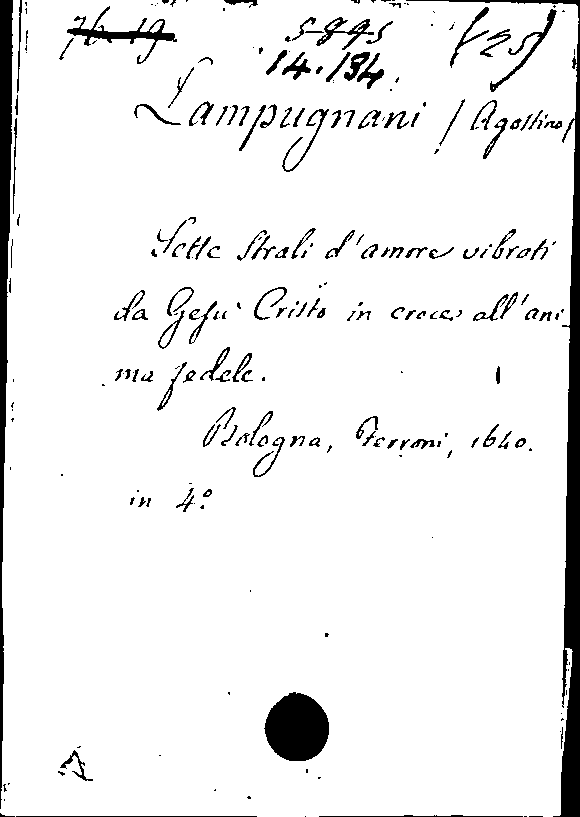 76. 19. 5895 (25)
14.134.
Lampugnani / Agostino /
Sette Strali d'amore vibrati
da Gesu' Cristo in croce, all'ani-
ma fedele.
Bologna, Ferroni, 1640.
in 4º